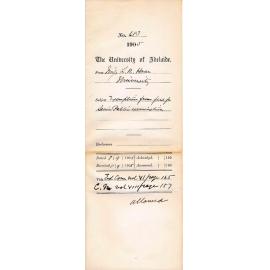 No. 613
1905
The University of Adelaide.
FROM Miss L. R.
University
Exemption from fees for
Senior Public examination
Enclosures
Dated / / 1905 Acknowld. / / 190
Received / / 1905 Answered / / 190
Ed. Com vol VI page 165
C. M vol VIII page 157
Allowed